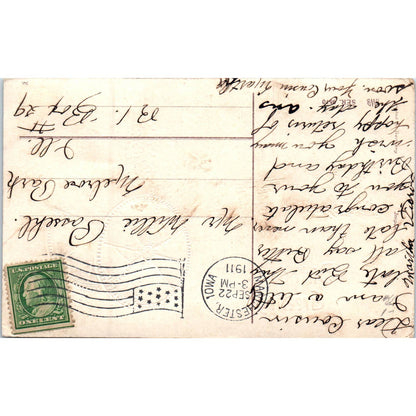 Dear Cousin
I am a lit
late But
all say Better
late than never
congratulate
you to your
Birthday and
wish you many
happy returns of
the day. ans
soon. Your Cousin
MANCHESTER, IOWA
SEP 22
3-PM
1911
U.S. POSTAGE
ONE CENT
Mr Willie Possehl.
Melrose Park
Ill.
R 1. Box 29